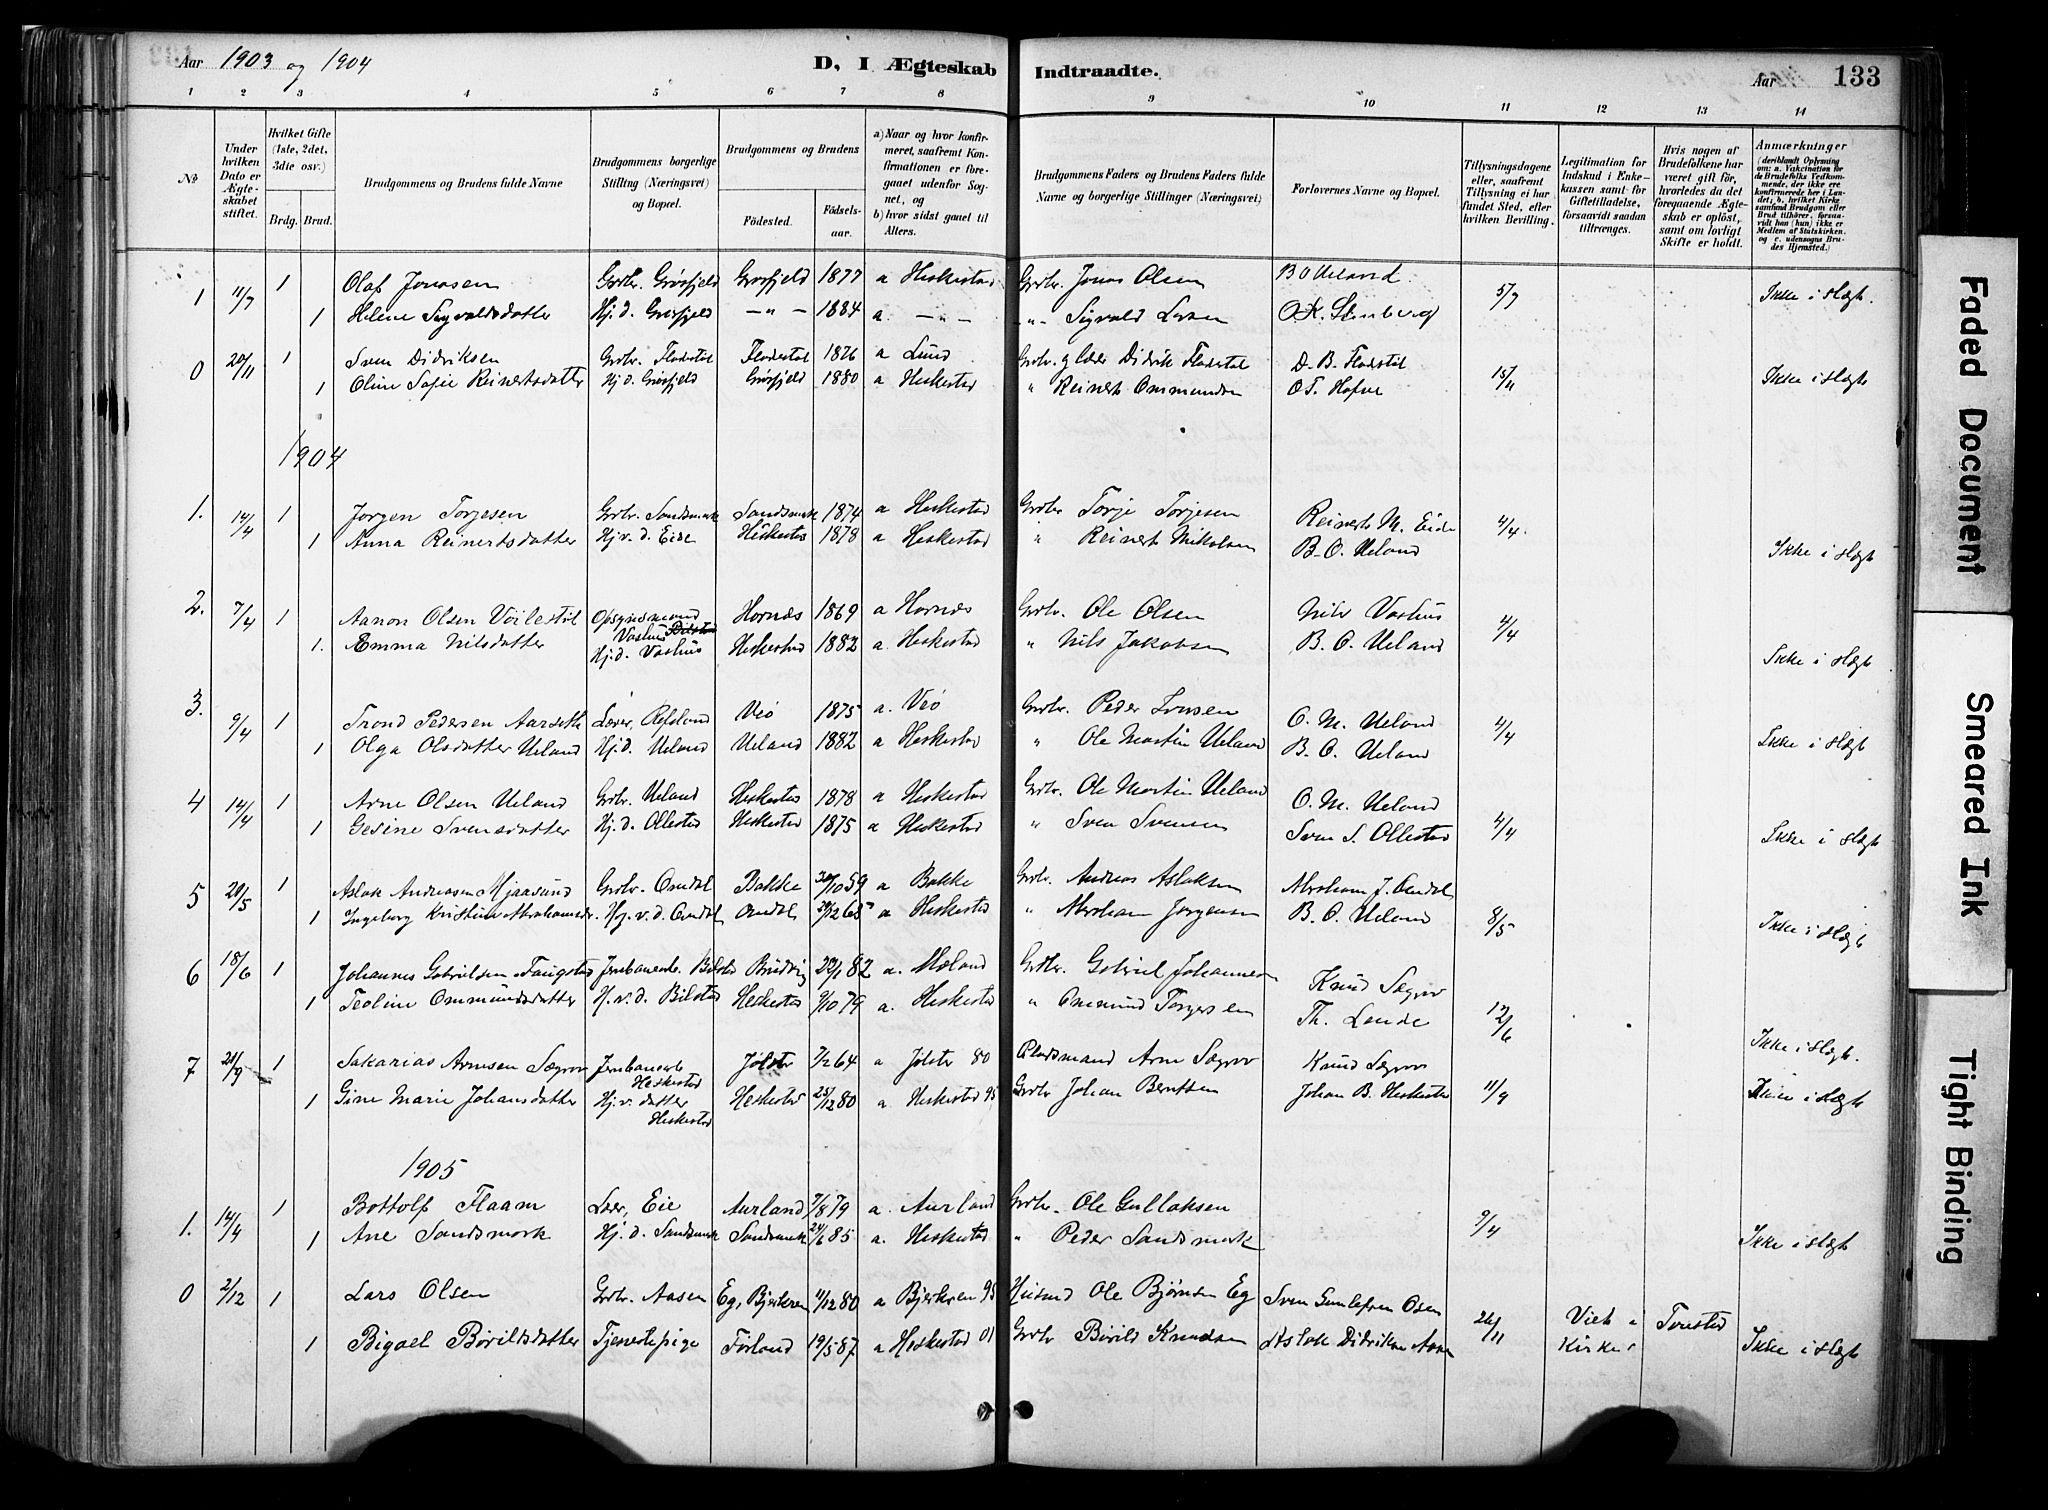 Aar 1903 og 1904
D. I Ægteskab Indtraadte.
Aar 133
1 2 3 4 5 6 7 8 9 10 11 12 13 14
No
Under hvilken Dato er Ægteskabet stiftet.
Hvilket Gifte (1ste, 2det, 3die osv.)
Brdg. Brud.
Brudgommens og Brudens fulde Navne
Brudgommens borgerlige Stilling (Næringsvei) og Bopæl.
Brudgommens og Brudens
Födested. Födselsaar.
a) Naar og hvor konfirmeret, saafremt Konfirmationen er foregaaet udenför Sognet, og
b) hvor sidst gaaet til Alters.
Brudgommens Faders og Brudens Faders fulde Navne og borgerlige Stillinger (Næringsvei)
Forlovernes Navne og Bopæl.
Tillysningsdagene eller, saafremt Tillysning ei har fundet Sted, efter hvilken Bevilling.
Legitimation for Indskud i Enkekassen samt för Giftetilladelse, forsaavidt saadan tiltrænges.
Hvis nogen af Brudefolkene har været gift för, hvorledes da det foregaaende Ægteskab er oplöst, samt om lovligt Skifte er holdt.
Anmærkninger
(deriblandt Oplysning om: a. Vakcination for de Brudefolks Vedkommende, der ikke ere konfirmerede her i Landet; b. hvilket Kirkesamfund Brudgom eller Brud tilhörer, forsaavidt han (hun) ikke er Medlem af Statskirken, og c. udensogns Brudes Hjemsted.
1 11/7 1 Olaf Jonasen Grdbr. Grøsfjeld Grøsfjeld 1877 a Heskestad Grdbr. Jonas Olsen B O Ueland 5/7
1 Helene Sigvaldsdatter Hj. d. Grøsfjeld —"— 1884 a. —"— —"— Sigvald O. K. Ikke i Slægt.
0 20/11 1 Sven Didriksen Grdbr. Flodestøl Flodestøl 1876 a Lund Grdbr. Didrik D. B. 15/11
1 Oline Sofie Reinertsdatter Hj. d. Grøsfjeld Grøsfjeld 1880 a Heskestad " Reinert Ommundsen O T. Ikke i Slægt
1904
1. 14/4 1 Jørgen Torjesen Grdbr. Sandsmark Sandsmark 1874 a Heskestad Grdbr Torje Torjesen Reinert M. Eide 4/4
1 Anna Reinertsdatter Hj. v. d. Eide Heskestad 1878 a Heskestad " Reinert Nikolsen B. O. Ueland Ikke i Slægt
2. 7/4 1 Aanon Olsen Hornnes 1869 a Hornnes Grdbr. Ole Olsen Nils Vashus 4/4
Vashus Bilstad
1. Emma Nilsdatter Hj. d. Vashus Heskestad 1882 a. Heskestad " Nils Jakobsen B. O. Ueland Ikke i Slægt
3. 9/4 1 Trond Pedersen Aarseth Lærer, Refsland Veö 1875 a. Veö Grdbr. Peder O. M. Ueland 4/4
1 Olga Olsdatter Ueland Hj. d. Ueland Ueland 1882 a Heskestad " Ole Martin Ueland B. O. Ueland Ikke i Slægt
4 14/4 1 Arne Olsen Ueland Grdbr. Ueland Heskestad 1878 a Heskestad Grdbr. Ole Martin Ueland O. M. Ueland 4/4
1 Gesine Svensdatter Hj. d. Ollestad Heskestad 1875 a Heskestad " Sven Svensen Sven S. Ollestad Ikke i Slægt
5 20/5 1 Aslak Andreasen Mjaasund Grdbr. Omdal Bakke 59 a Bakke Grdbr. Andreas Aslaksen Abraham J. Omdal 8/5
1 Ingeborg Kristine Abrahamsdr. Hj. v. d. Omdal Omdal a Heskestad " Abraham Jørgensen B. O. Ueland Ikke i Slægt
6 18/6 1 Johannes Gabrielsen Jernbanearb. Bilstad 82 a. Grdbr. Gabriel Johannesen Knud Sægrov 12/6
1 Teoline Ommundsdatter Hj. v. d. Bilstad Heskestad 79 a. Heskestad " Ommund Torgersen Th. Lende Ikke i Slægt.
7 21/9 1 Sakarias Arnesen Sægrov Jernbanearb. Heskestad Jølster 7/2 64 a Jølster 80 Pladsmand Arne Sægrov Knud Sægrov 11/9
1 Gine Marie Johansdatter Hj. v. datter Heskestad Heskestad 25/12 80 a Heskestad 95 Grdbr Johan Berntsen Johan B. Heskestad Ikke i Slægt
1905
1. 14/4 1 Bottolf Flaam Lærer, Eie Aurland 7/8 79 a. Aurland Grdbr. Ole Gullaksen 9/4
1 Ane Sandsmark Hj. d. Sandsmark Sandsmark 85 a. Heskestad " Peder Sandsmark Ikke i Slægt
0 2/12 1 Lars Olsen Grdbr. Aasen Eg, Bjerkrem 11/12 80 a Bjerkrem 95 Husmd Ole Bjørnsen Eg Sven 26/11 Viet i Tonstad
1 Bigael Børildsdatter Tjenestepige Førland 19/5 87 a Heskestad 01 Grdbr Børild Knudsen Aslak Didriksen Kirke. Ikke i Slægt
Faded Document
Smeared Ink
Tight Binding